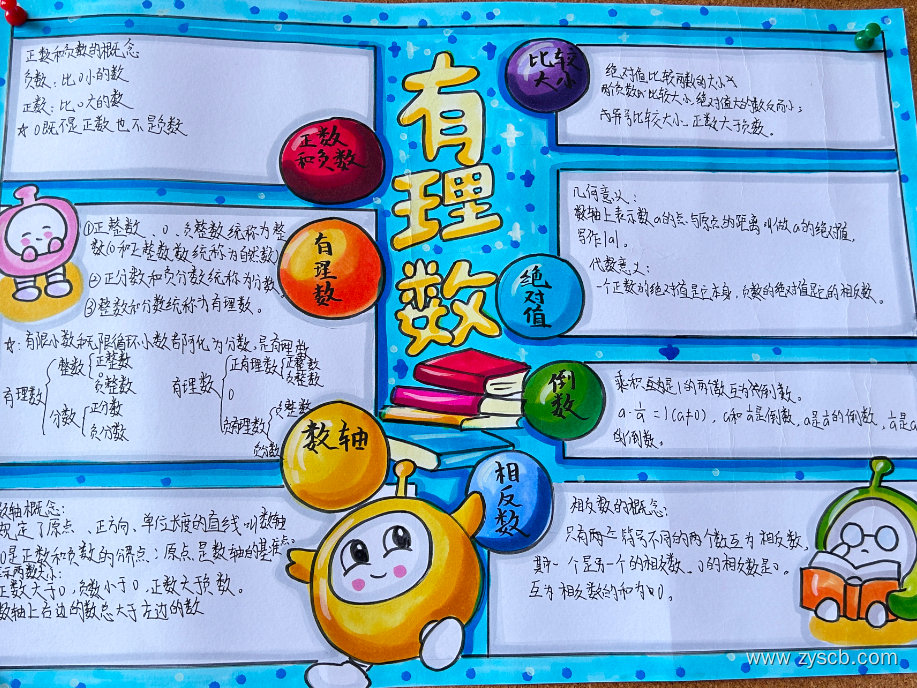 有理数
正数和负数
正数和负数的概念
负数：比0小的数
正数：比0大的数
☆0既不是正数也不是负数
有理数
①正整数、0、负整数统称为整
数(0和正整数数统称为自然数)
②正分数和负分数统称为分数。
③整数和分数统称为有理数。
☆：有限小数和无限循环小数都可化为分数，是有理数
有理数
整数
正整数
负整数
分数
正分数
负分数
有理数
正有理数
正整数
负整数
0
负有理数
负整数
负分数
数轴
数轴概念：
规定了原点、正方向、单位长度的直线叫数轴
0是正数和负数的分界点；原点是数轴的基准点。
示两数大小：
正数大于0，负数小于0，正数大于负数。
数轴上右边的数总大于左边的数
比较
大小
绝对值比较两数的大小
两负数比较大小，绝对值大的数反而小；
两异号比较大小，正数大于负数。
绝对值
几何意义：
数轴上表示数a的点与原点的距离叫做a的绝对值，
写作|a|。
代数意义：
一个正数的绝对值是它本身，负数的绝对值是它的相反数。
倒数
乘积互为是1的两个数互为倒数。
a·1/a=1(a≠0)，a和1/a是倒数，a是1/a的倒数，1/a是a
的倒数。
相反数
相反数的概念：
只有两个符号不同的两个数互为相反数，
其中一个是另一个的相反数，0的相反数是0。
互为相反数的和为0。
www.zyscb.com